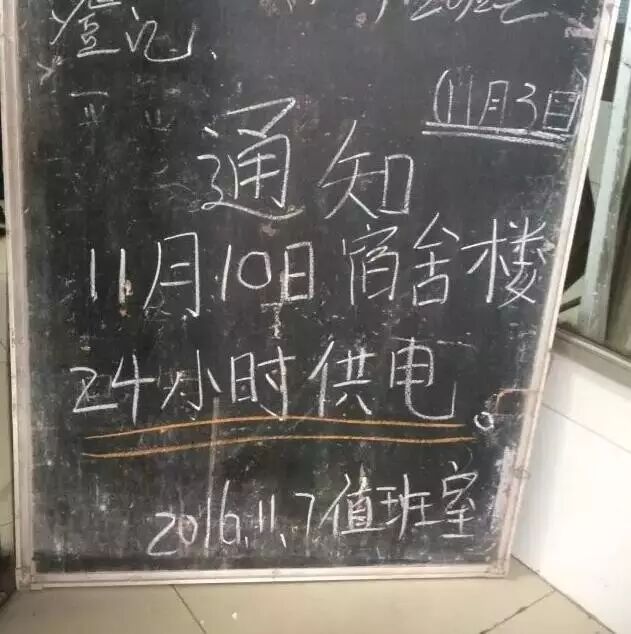 登记.
(11月3日)
通知
11月10日宿舍楼
24小时供电。
2016.11.7值班室